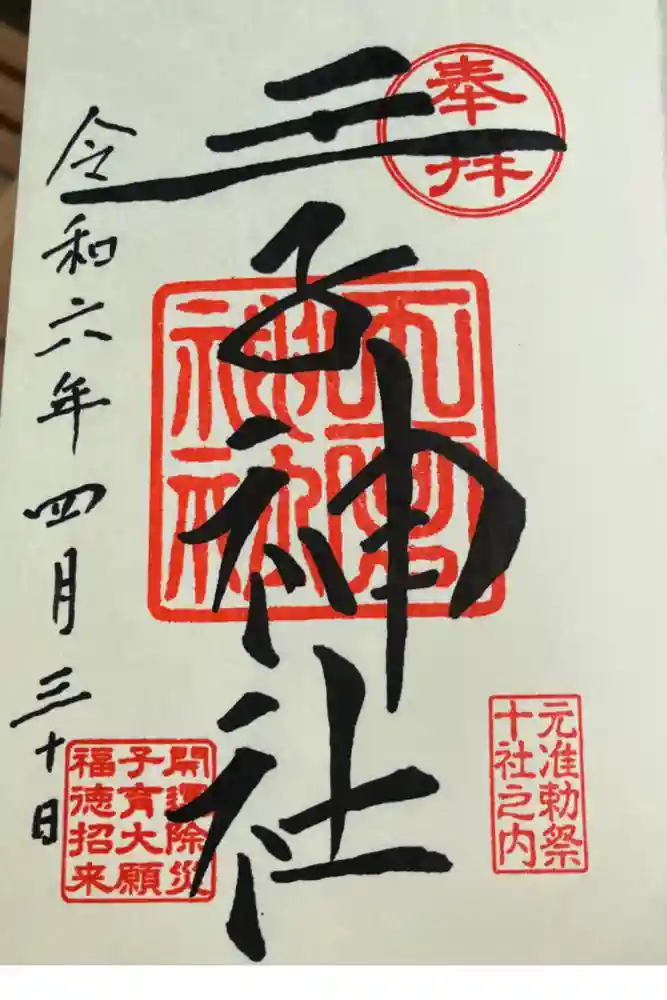 奉拝
王子神社
令和六年四月三十日
元准勅祭
十社之内
開運除災
子育大願
福徳招来